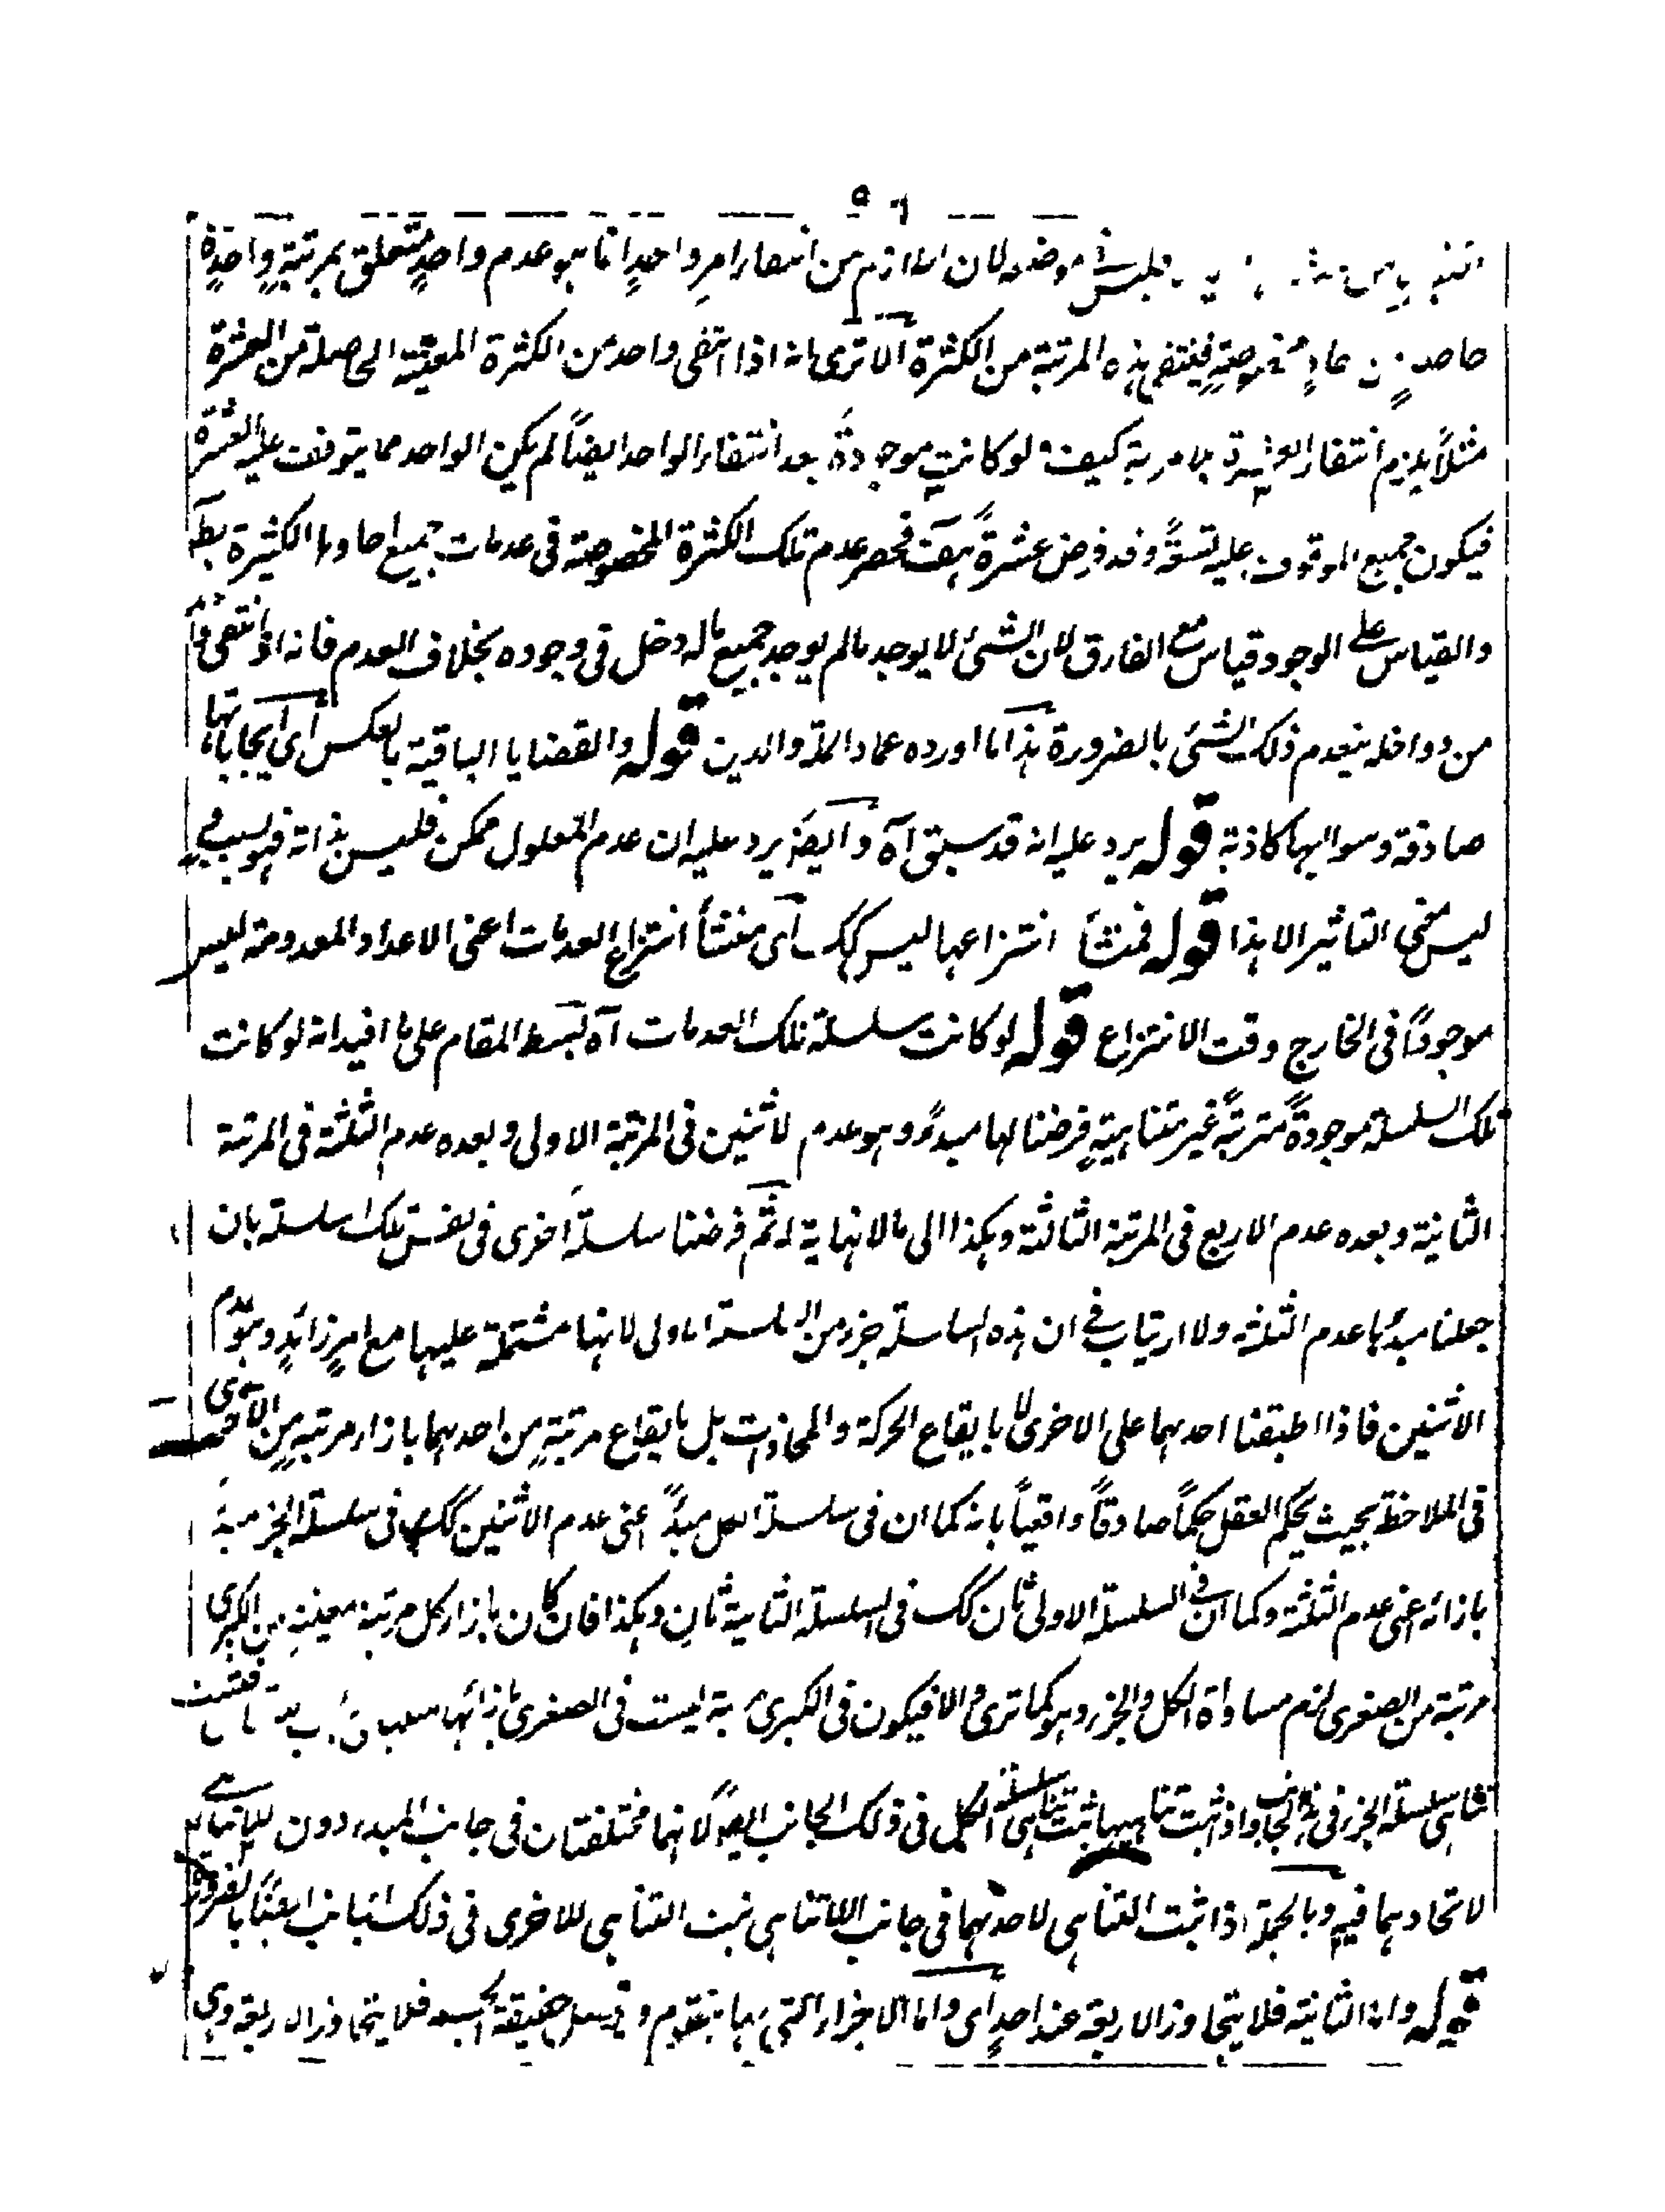 ٥٦
فليس فى موضعه لان اللازم من انتفاء امر واحدٍ انما هو عدم واحدٍ متعلق بمرتبةٍ واحدةٍ
فينتفى هذه المرتبة من الكثرة الا ترى انه اذا انتفى واحد من الكثرة المعينة الحاصلة من العشرة
مثلاً يلزم انتفاء العشرة بلا مرية كيف ولو كانت موجودةً بعد انتفاء الواحد ايضاً لم يكن الواحد مما يتوقف عليه العشرة
فيكون جميع الموقوف عليه تسعةً وقد فرض عشرةً هف فحصر عدم تلك الكثرة المخصوصة فى عدمات جميع احادها الكثيرة بط
والقياس على الوجود قياس مع الفارق لان الشئ لا يوجد ما لم يوجد جميع ما له دخل فى وجوده بخلاف العدم فانه اذا انتفى واحد
من دواخله ينعدم ذلك الشئ بالضرورة هذا ما اورده عماد الملة والدين قوله والقضايا الباقية بالعكس اى ايجاباتها
صادقة وسوالبها كاذبة قوله يرد عليه انه قد سبق آه وايضاً يرد عليه ان عدم المعلول ممكن فليس بذاته فهو بسبب
ليس معنى التاثير الا هذا قوله فمنشأ انتزاعها ليس كك اى منشأ انتزاع العدمات اعنى الاعداد المعدومة ليس
موجوداً فى الخارج وقت الانتزاع قوله لو كانت سلسلة تلك العدمات آه بسط المقام على ما افيد انه لو كانت
تلك السلسلة موجودةً مترتبةً غير متناهيةٍ فرضنا لها مبدءً وهو عدم الاثنين فى المرتبة الاولى وبعده عدم الثلثة فى المرتبة
الثانية وبعده عدم الاربع فى المرتبة الثالثة وهكذا الى ما لا نهاية له ثم فرضنا سلسلةً اخرى فى نفس تلك السلسلة بان
جعلنا مبدئها عدم الثلثة ولا ارتياب فى ان هذه السلسلة جزء من السلسلة الاولى لانها مشتملة عليها مع امرٍ زائدٍ وهو عدم
الاثنين فاذا طبقنا احدهما على الاخرى لا بايقاع الحركة والمحاذات بل بايقاع مرتبةٍ من احدهما بازاء مرتبةٍ من الاخرى
فى الملاحظة بحيث يحكم العقل حكماً صادقاً واقعياً بانه كما ان فى سلسلة الكل مبدءً اعنى عدم الاثنين كك فى سلسلة الجزء مبدءً
بازائه اعنى عدم الثلثة وكما ان فى السلسلة الاولى ثان كك فى السلسلة الثانية ثانٍ وهكذا فان كان بازاء كل مرتبة معينة من الكبرى
مرتبة من الصغرى لزم مساواة الكل والجزء وهو كما ترى والا فيكون فى الكبرى مرتبة ليست فى الصغرى بازائها
تناهى سلسلة الجزء فى ذلك الجانب واذا ثبت تناهيها ثبت تناهى سلسلة الكل فى ذلك الجانب ايضاً لانهما مختلفتان فى جانب المبدء دون اللاتناهى
لاتحادهما فيه وبالجملة اذا ثبت التناهى لاحدهما فى جانب اللاتناهى ثبت التناهى للاخرى فى ذلك الجانب ايضاً بالضرورة
قوله واما الثانية فلا يتجاوز الاربعة عند احدٍ اى واما الاجزاء التى بها يتقوم و حقيقة الجسم فلا يتجاوز الاربعة وهى